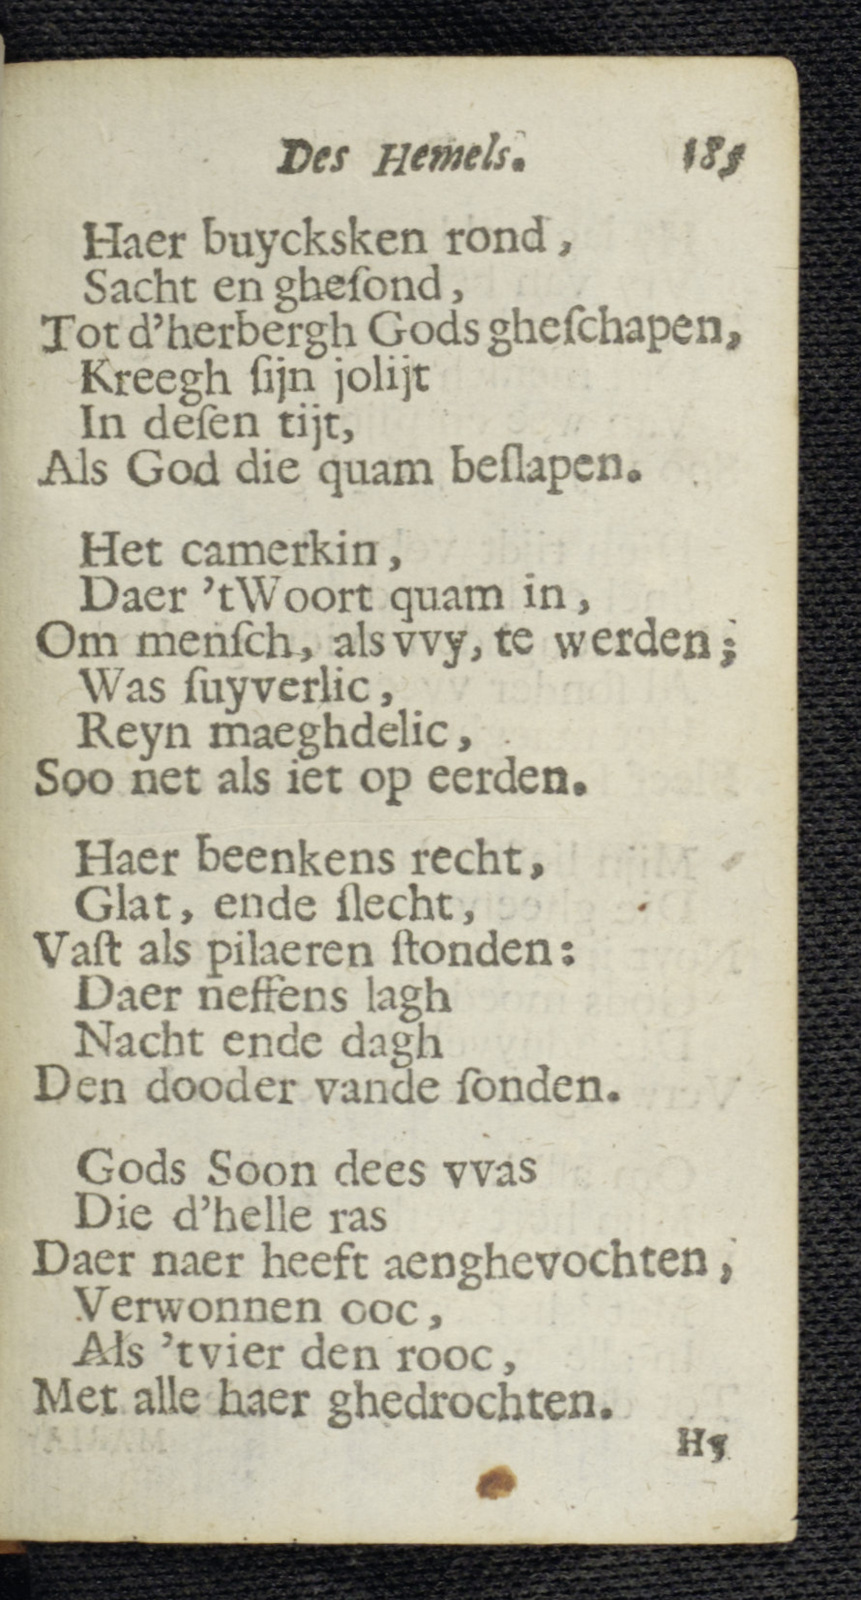 Des Hemels. 185
Haer buycksken rond,
Sacht en gheſond,
Tot d'herbergh Gods gheſchapen,
Kreegh ſijn jolijt
In deſen tijt,
Als God die quam beſlapen.
Het camerkin,
Daer 'tWoort quam in,
Om menſch, als vvy, te werden;
Was ſuyverlic,
Reyn maeghdelic,
Soo net als iet op eerden.
Haer beenkens recht,
Glat, ende ſlecht,
Vaſt als pilaeren ſtonden:
Daer neffens lagh
Nacht ende dagh
Den dooder vande ſonden.
Gods Soon dees vvas
Die d'helle ras
Daer naer heeft aenghevochten,
Verwonnen ooc,
Als 'tvier den rooc,
Met alle haer ghedrochten.
H5